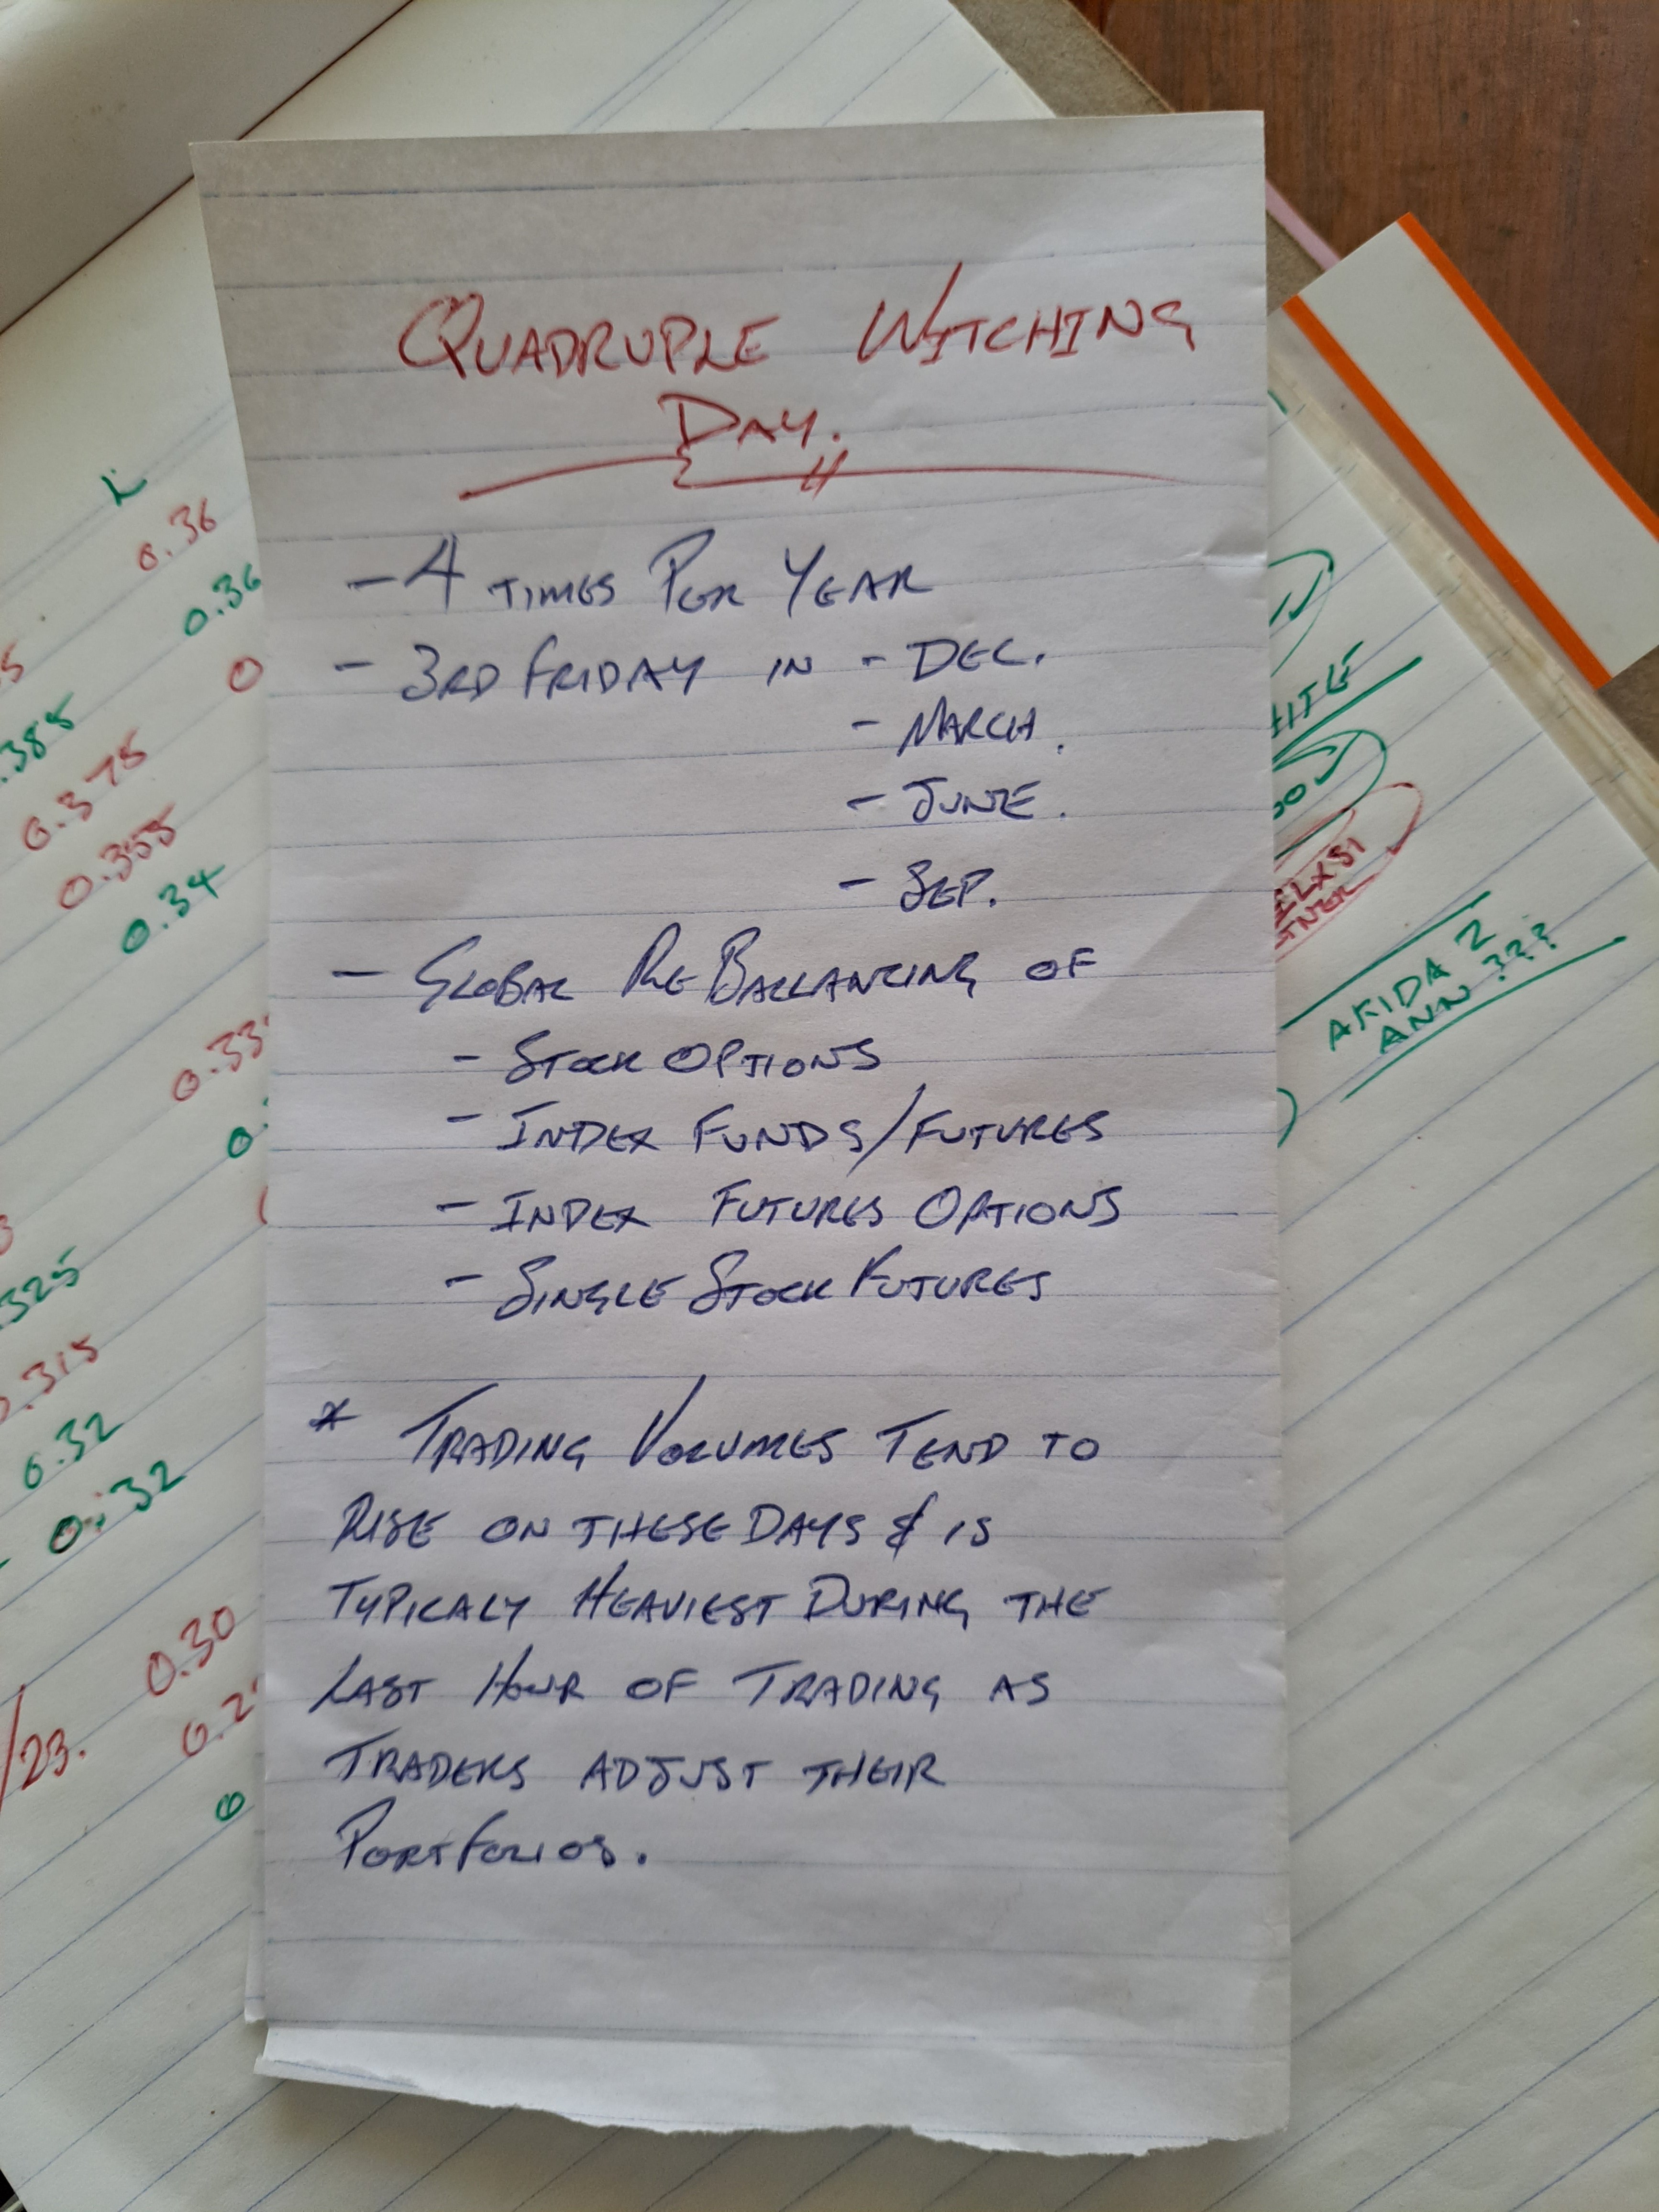 QUADRUPLE WITCHING
DAY.
- 4 TIMES PER YEAR
- 3RD FRIDAY IN - DEC.
- MARCH.
- JUNE.
- SEP.
- GLOBAL RE BALLANCING OF
- STOCK OPTIONS
- INDEX FUNDS/FUTURES
- INDEX FUTURES OPTIONS
- SINGLE STOCK FUTURES
* TRADING VOLUMES TEND TO
RISE ON THESE DAYS & IS
TYPICALY HEAVIEST DURING THE
LAST HOUR OF TRADING AS
TRADERS ADJUST THEIR
PORTFOLIOS.
0.36
0.36
0
.385
0.375
0.355
0.34
0.33
0.
.325
0.315
0.32
0.32
0.30
0.2
/23.
AKIDA 2
ANN ???